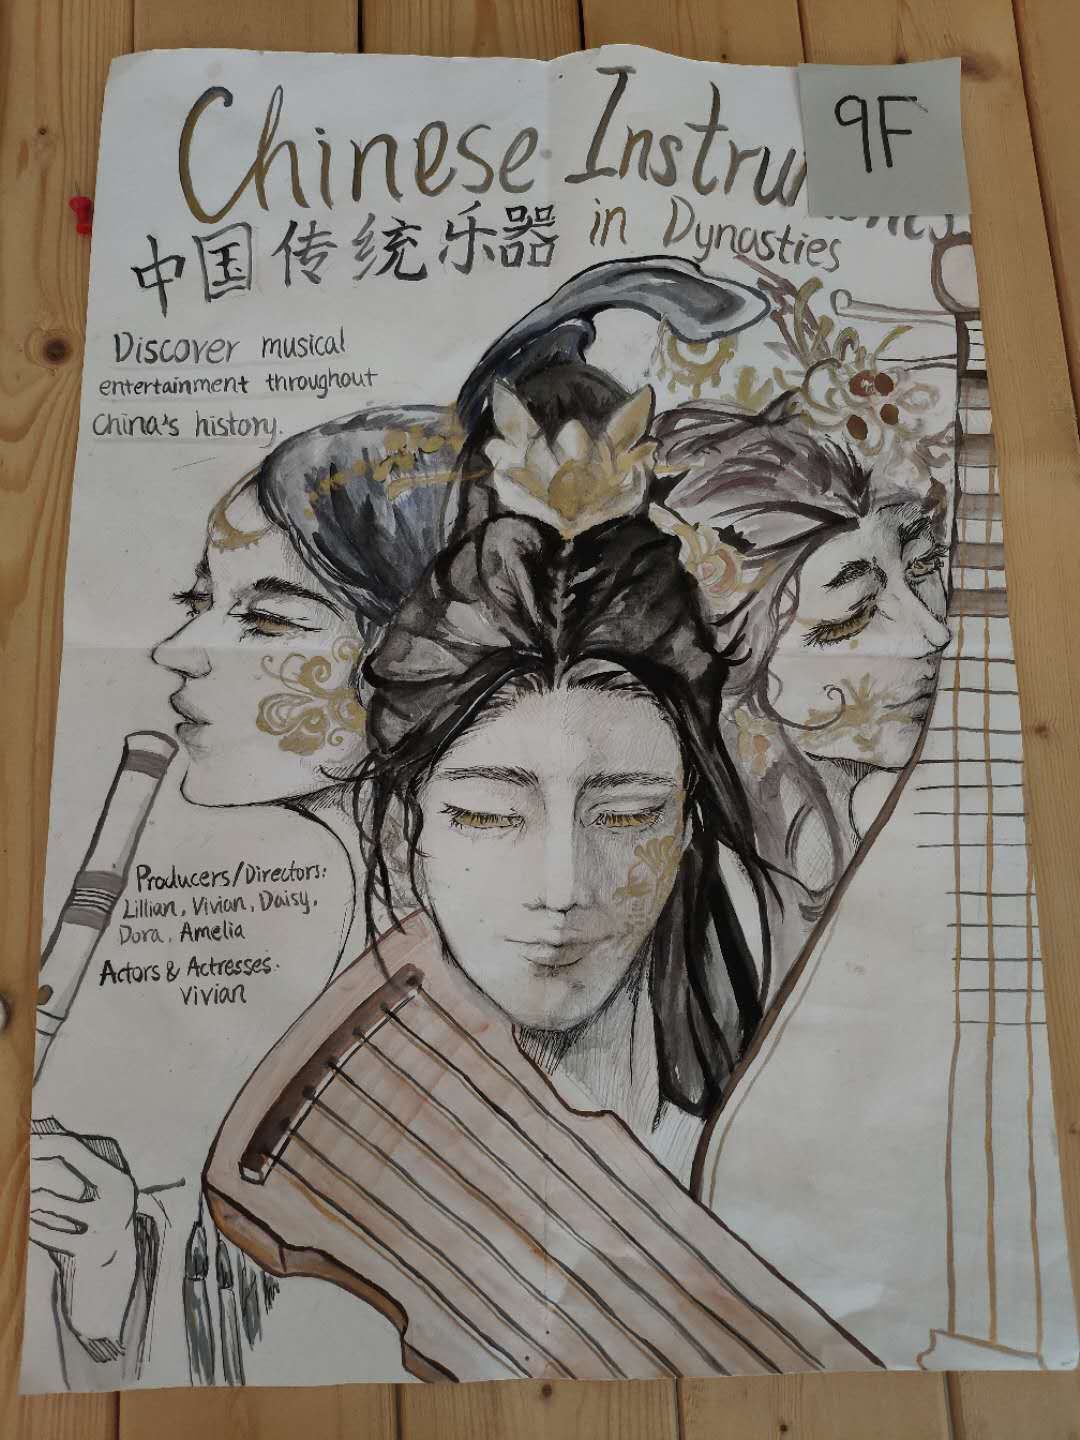 Chinese Instruments
9F
中国传统乐器 in Dynasties
Discover musical
entertainment throughout
China's history.
Producers/Directors:
Lillian, Vivian, Daisy,
Dora, Amelia
Actors & Actresses:
Vivian